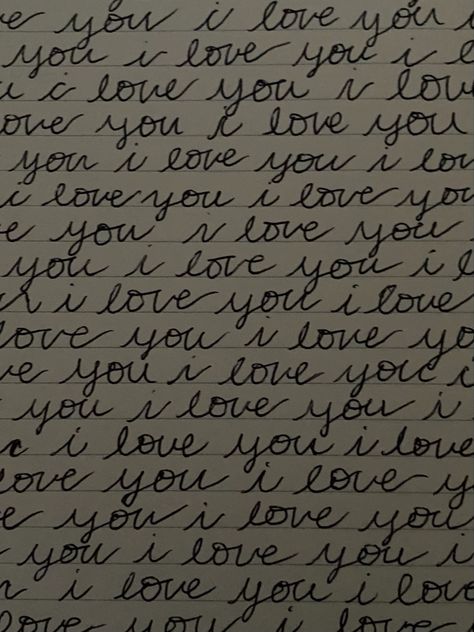 e you i love you
you i love you i
i love you i love
ove you i love you
you i love you i lov
i love you i love you
e you i love you
you i love you i l
i love you i love
love you i love yo
ve you i love you i
you i love you i
i love you i love
love you i love y
e you i love you
you i love you i
i love you i love
ove you i love